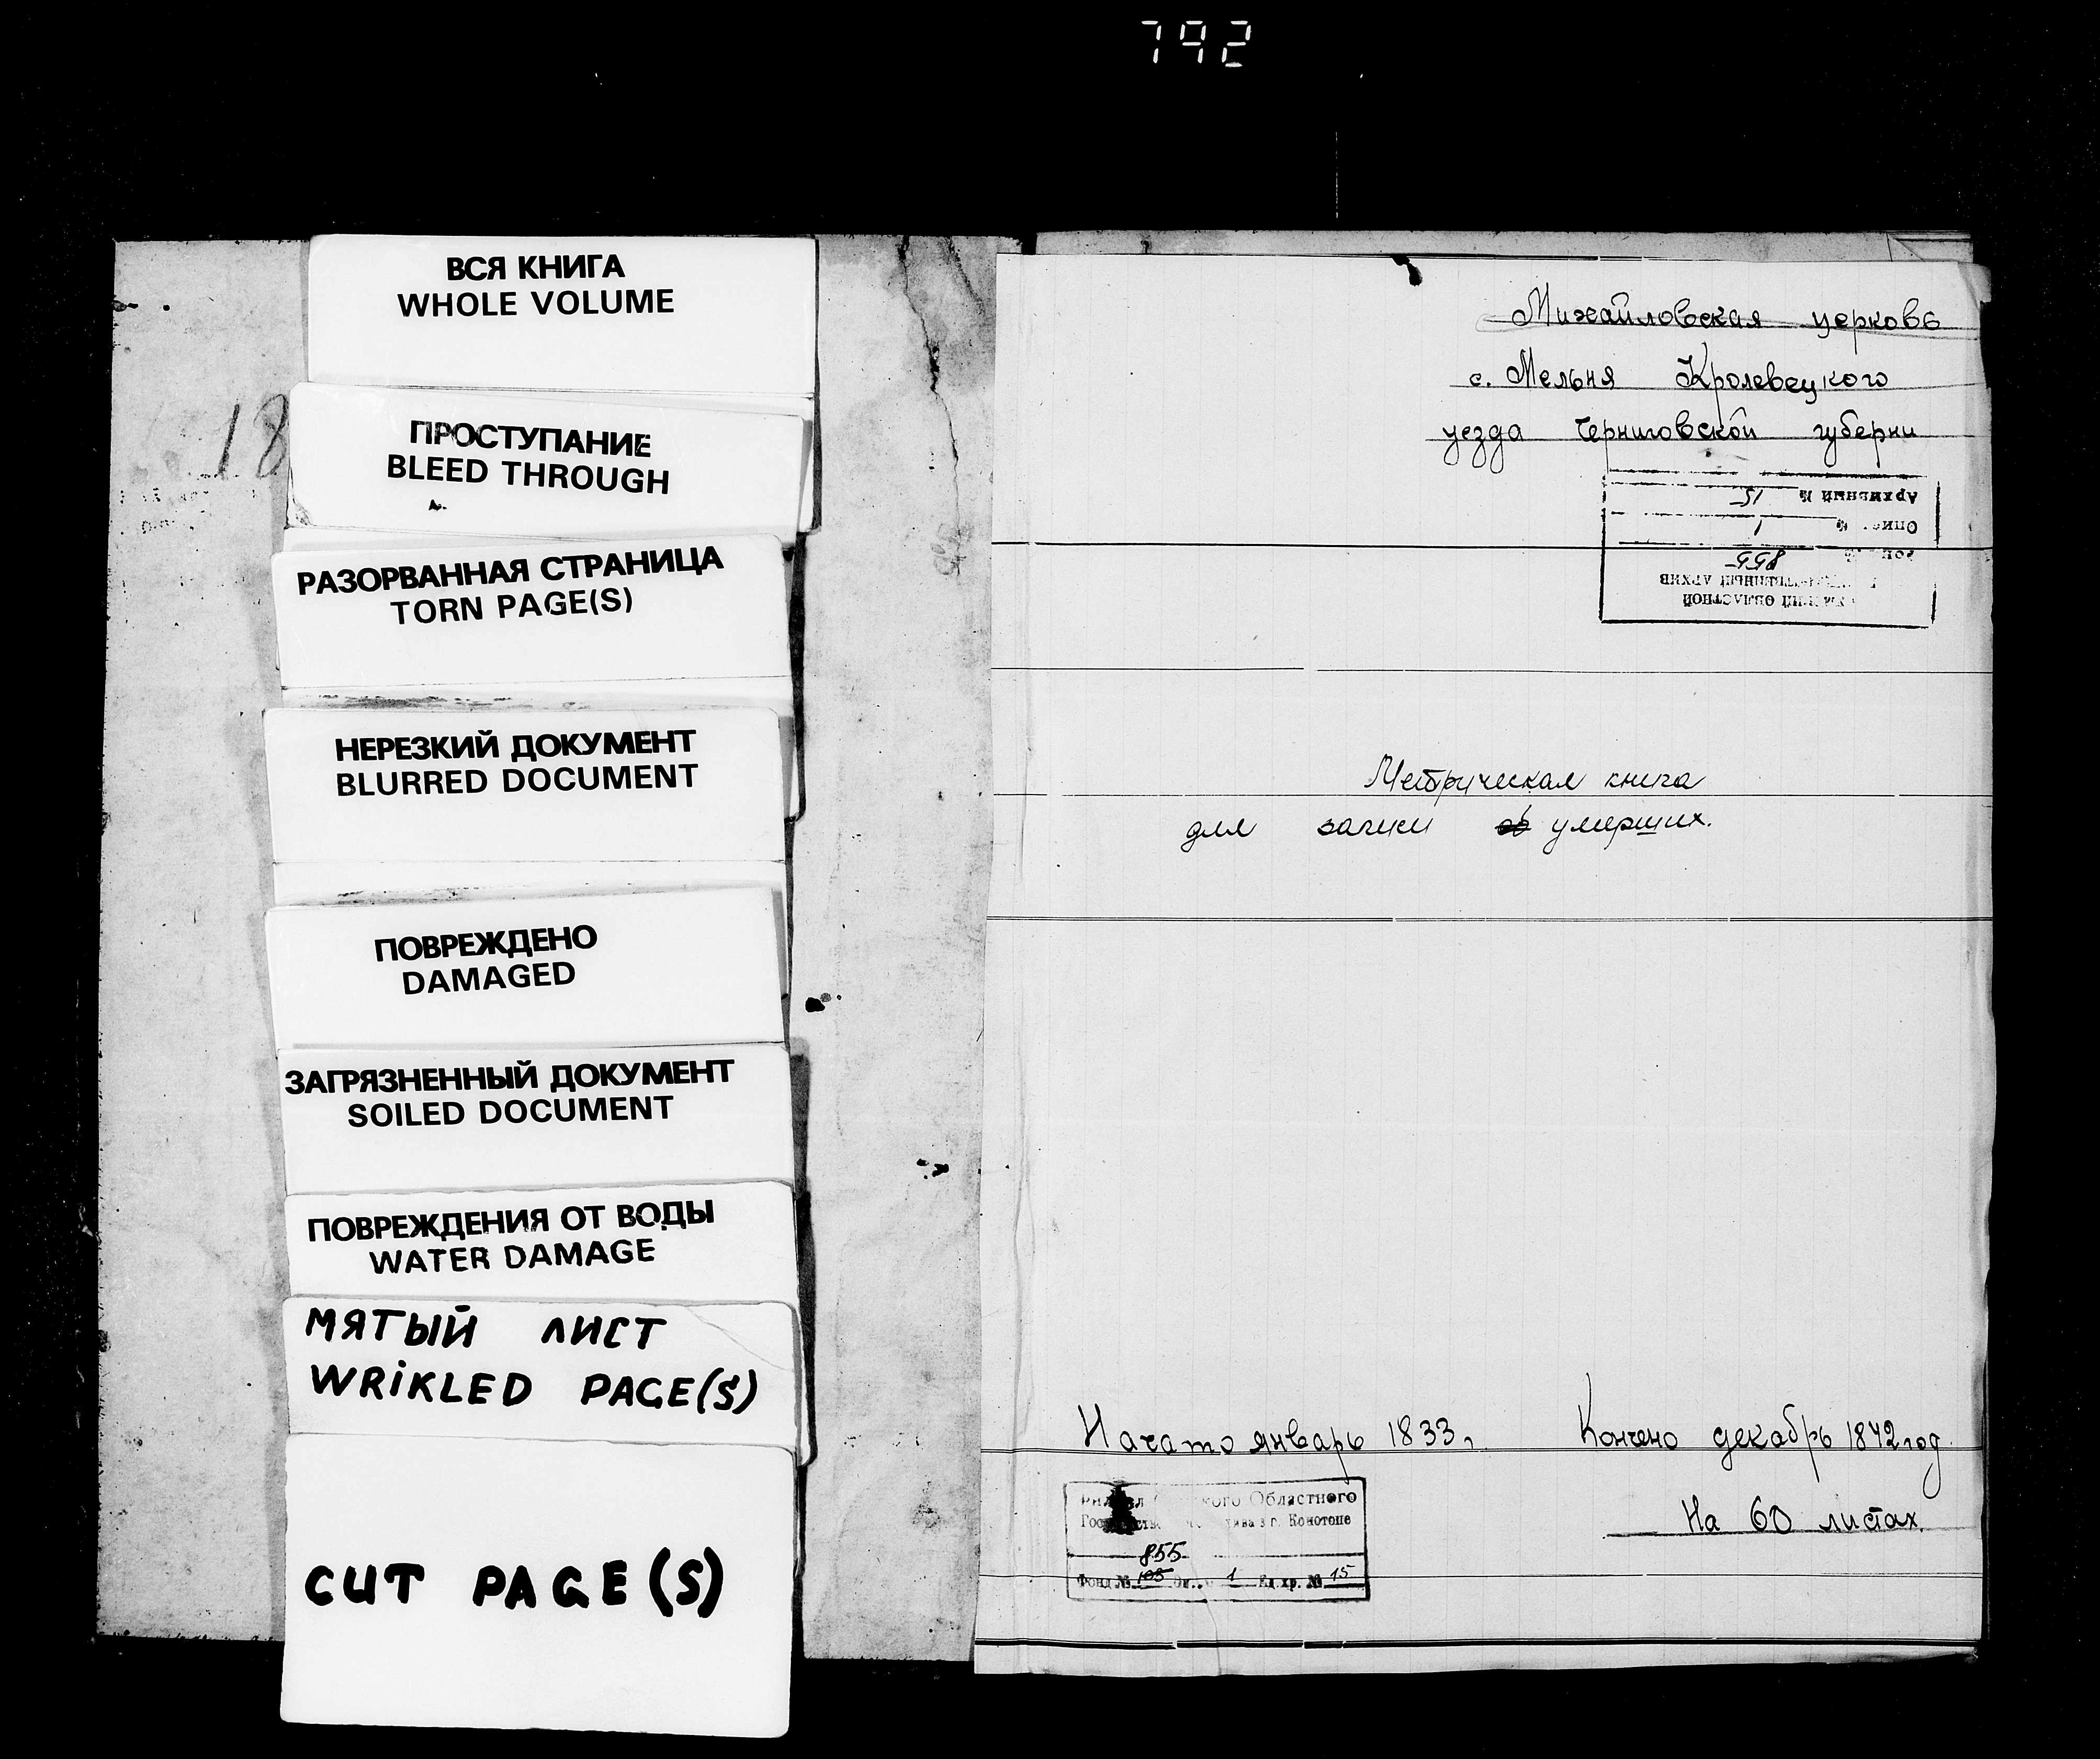 792
ВСЯ КНИГА
WHOLE VOLUME
18
ПРОСТУПАНИЕ
BLEED THROUGH
РАЗОРВАННАЯ СТРАНИЦА
TORN PAGE(S)
НЕРЕЗКИЙ ДОКУМЕНТ
BLURRED DOCUMENT
ПОВРЕЖДЕНО
DAMAGED
ЗАГРЯЗНЕННЫЙ ДОКУМЕНТ
SOILED DOCUMENT
ПОВРЕЖДЕНИЯ ОТ ВОДЫ
WATER DAMAGE
МЯТЫЙ ЛИСТ
WRIKLED PAGE(S)
CUT PAGE(S)
Михайловская церковь
с. Мельня Кролевецкого
уезда Черниговской губерни
ОБЛАСТНОЙ
АРХИВ
855
1
Архивный № 15
Метрическая книга
для записи умерших.
Начато январь 1833 г. Кончено декабрь 1842 год.
На 60 листах.
Областного
в г. Конотопе
855
Фонд № 105 Оп. 1 Ед. хр. № 15